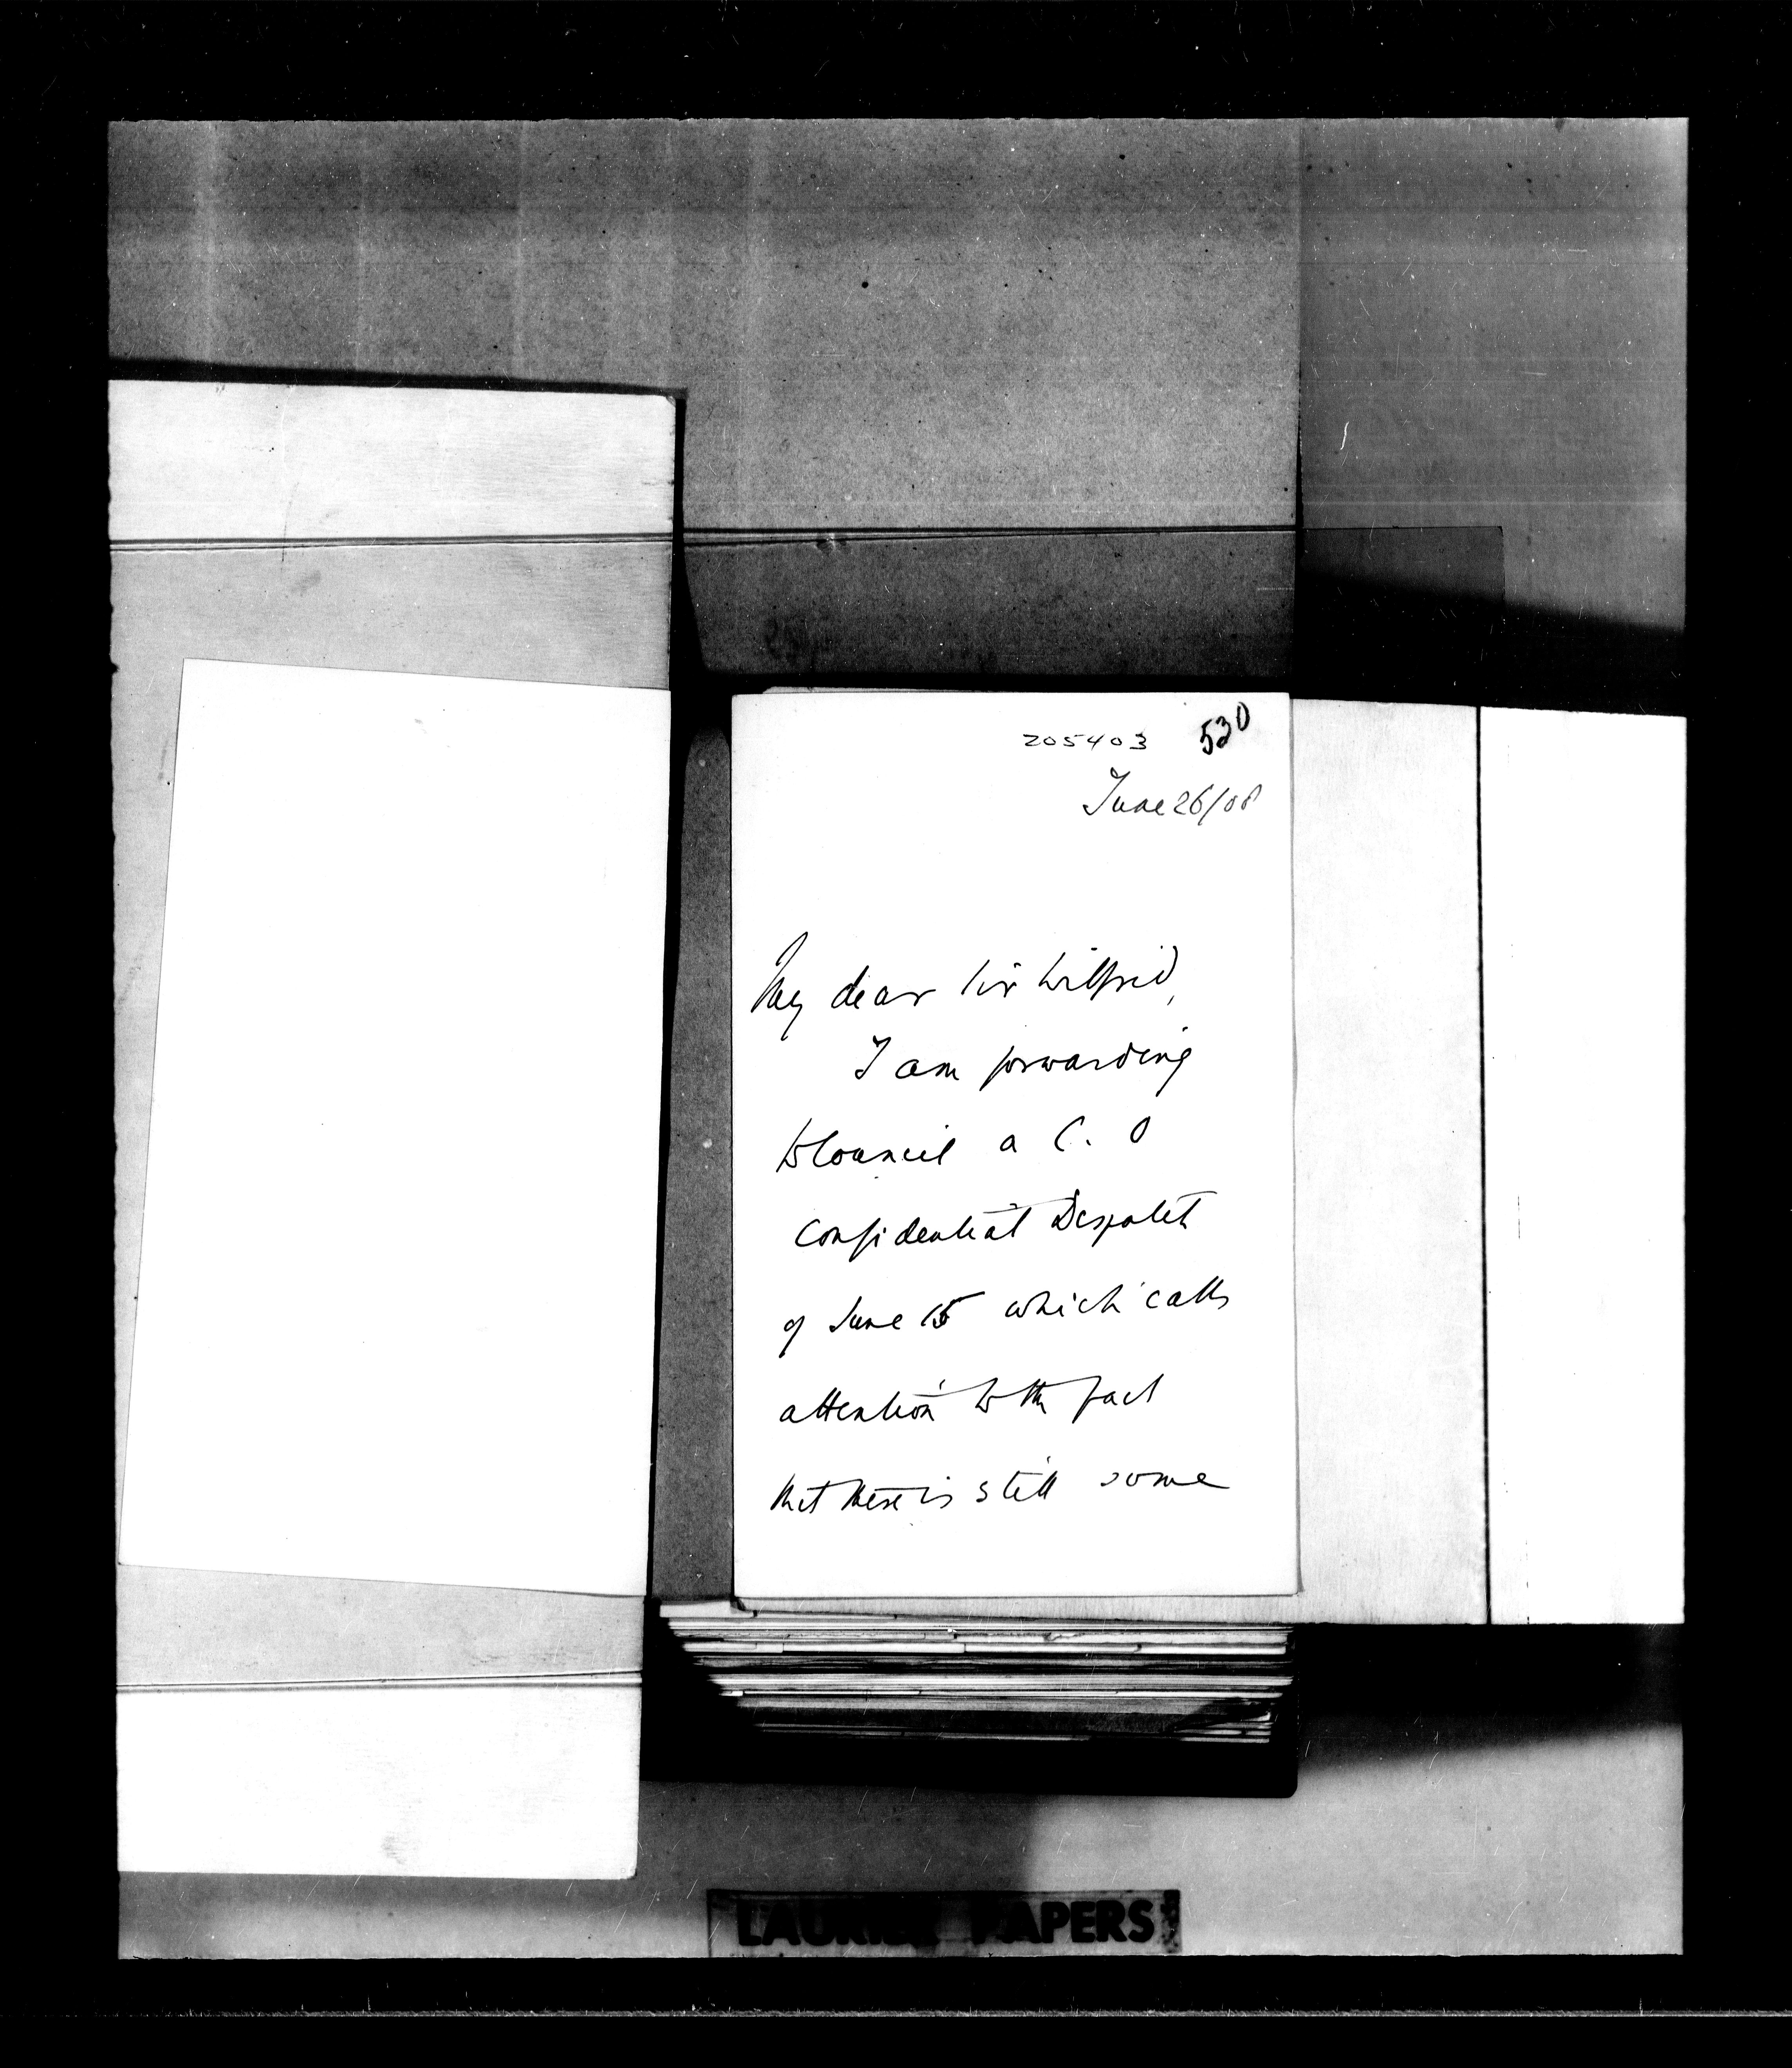 205403 530
June 26/08
My dear Sir Wilfrid,
I am forwarding
to Council a C. O
Confidential Despatch
of June 15 which calls
attention to the fact
that there is still some
LAURIER PAPERS